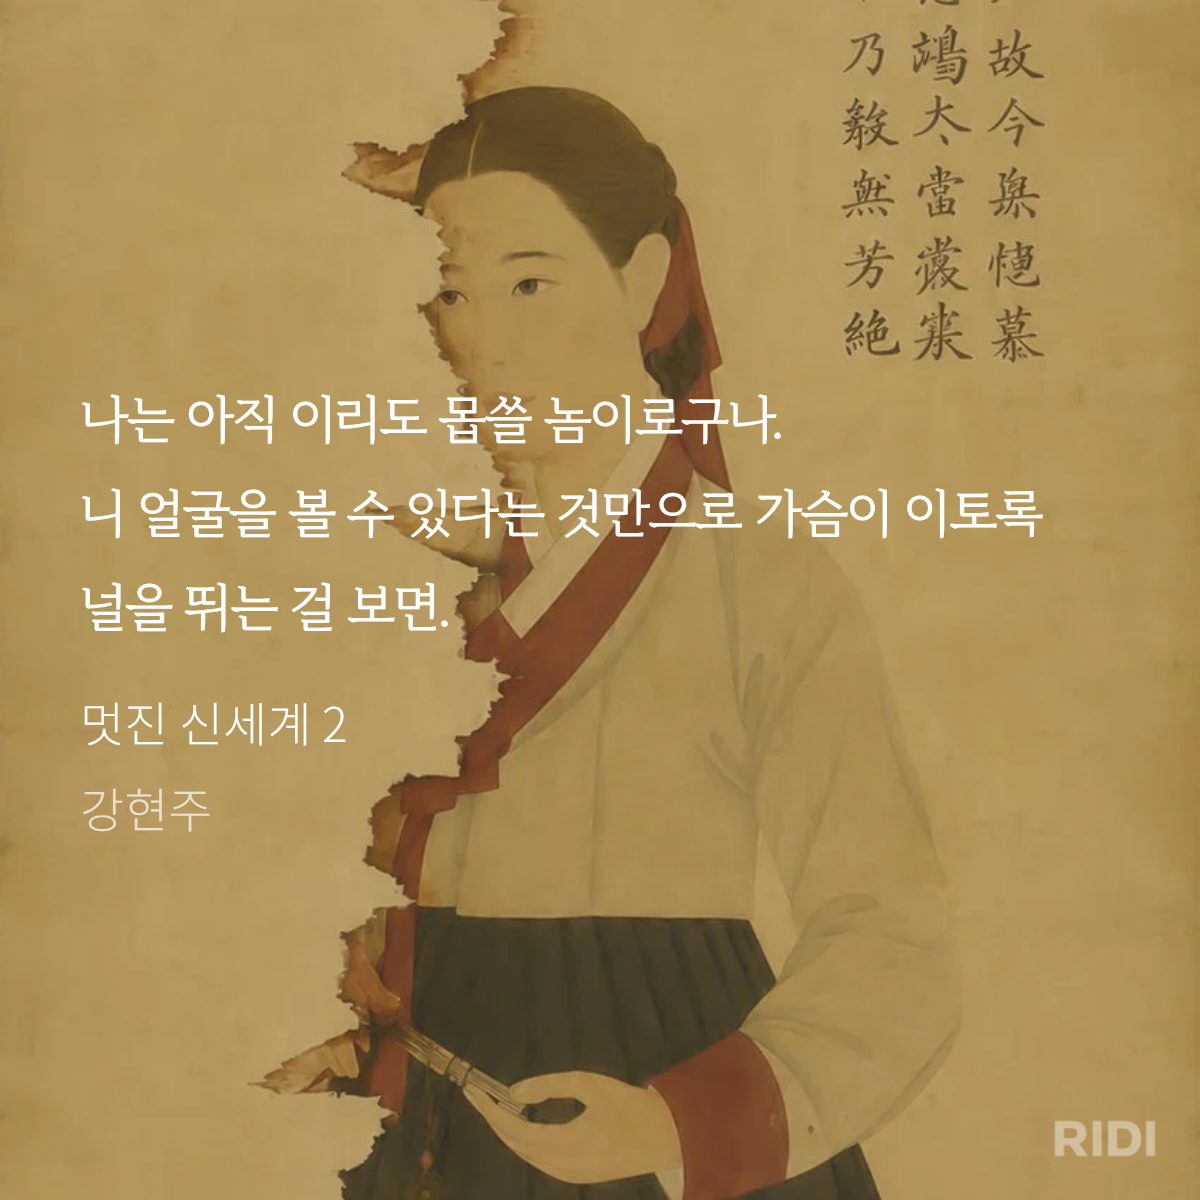 故今
慕
太
當
乃
然芳絶
나는 아직 이리도 몹쓸 놈이로구나.
니 얼굴을 볼 수 있다는 것만으로 가슴이 이토록
널을 뛰는 걸 보면.
멋진 신세계 2
강현주
RIDI